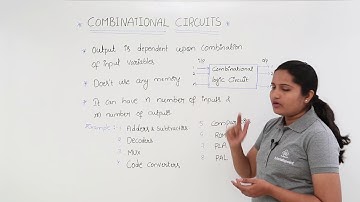 * COMBINATIONAL CIRCUITS *
* Output is dependent upon combination
of input variables
Combinational
logic Circuit
* Don't use any memory
* It can have n number of inputs &
m number of outputs
Example :- 1 Adders & Subtractors
2 Decoders
3 Mux
4 Code Converters
5
6
7 PLA
8 PAL